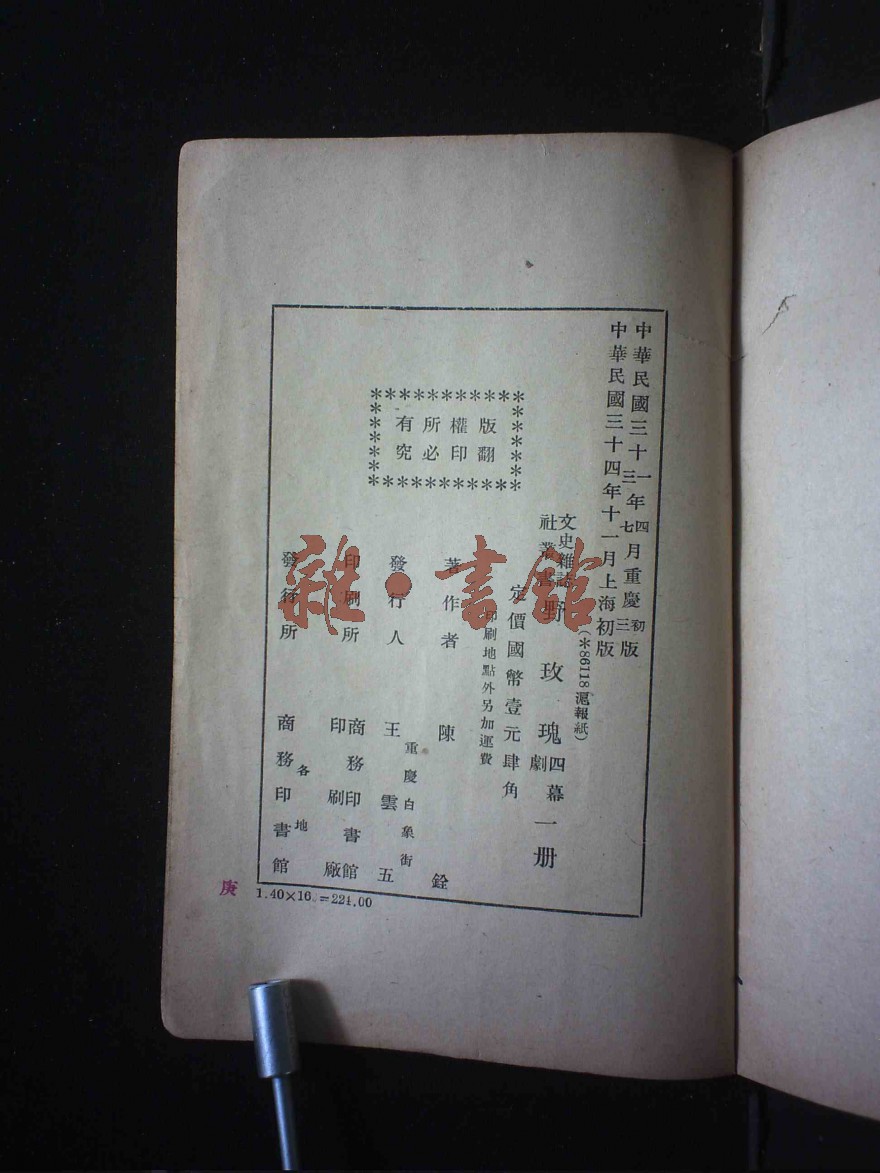 中華民國三十一年四月重慶初版
三 七 三
中華民國三十四年十一月上海初版
(*86118滬報紙)
文史雜誌
社叢書 野玫瑰 四幕劇 一册
定價國幣壹元肆角
印刷地點外另加運費
版權所有
翻印必究
著作者 陳銓
重慶白象街
發行人 王雲五
印刷所 商務印書館
印刷廠
各地
發行所 商務印書館
庚
1.40×16.=224.00
雜·書館